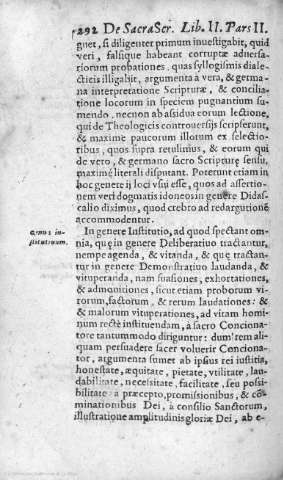 292 De SacraScr. Lib. II. Pars II.
gnet, si diligenter primum inuestigabit, quid
veri, falsique habeant corruptæ aduersa-
riorum probationes, quas syllogismis diale-
cticis illigabit, argumenta à vera, & germa-
na interpretatione Scripturæ, & concilia-
tione locorum in speciem pugnantium su-
mendo, necnon ab assidua eorum lectione,
qui de Theologicis controuersijs scripserunt,
& maximè paucorum illorum ex selectio-
ribus, quos supra retulimus, & eorum qui
de vero, & germano sacræ Scripturæ sensu,
maximè literali disputant. Poterunt etiam in
hoc genere ij loci vsui esse, quos ad assertio-
nem veri dogmatis idoneos in genere Didas-
calio diximus, quod crebrò ad redargutionē
accommodentur.
Genus in-
stitutiuum.
In genere Institutio, ad quod spectant om-
nia, quæ in genere Deliberatiuo tractantur,
nempe agenda, & vitanda, & quę tractan-
tur in genere Demonstratiuo laudanda, &
vituperanda, nam suasiones, exhortationes,
& admonitiones, sicut etiam proborum vi-
rorum, factorum, & rerum laudationes: &
& malorum vituperationes, ad vitam homi-
num rectè instituendam, à sacro Conciona-
tore tantummodo diriguntur: dum rem ali-
quam persuadere facer voluerit Conciona-
tor, argumenta sumet ab ipsius rei iustitia,
honestate, æquitate, pietate, vtilitate, lau-
dabilitate, necessitate, facilitate, seu possi-
bilitate: a præcepto, promissionibus, & co-
minationibus Dei, à consilio Sanctorum,
illustratione amplitudinis gloriæ Dei, ab e-